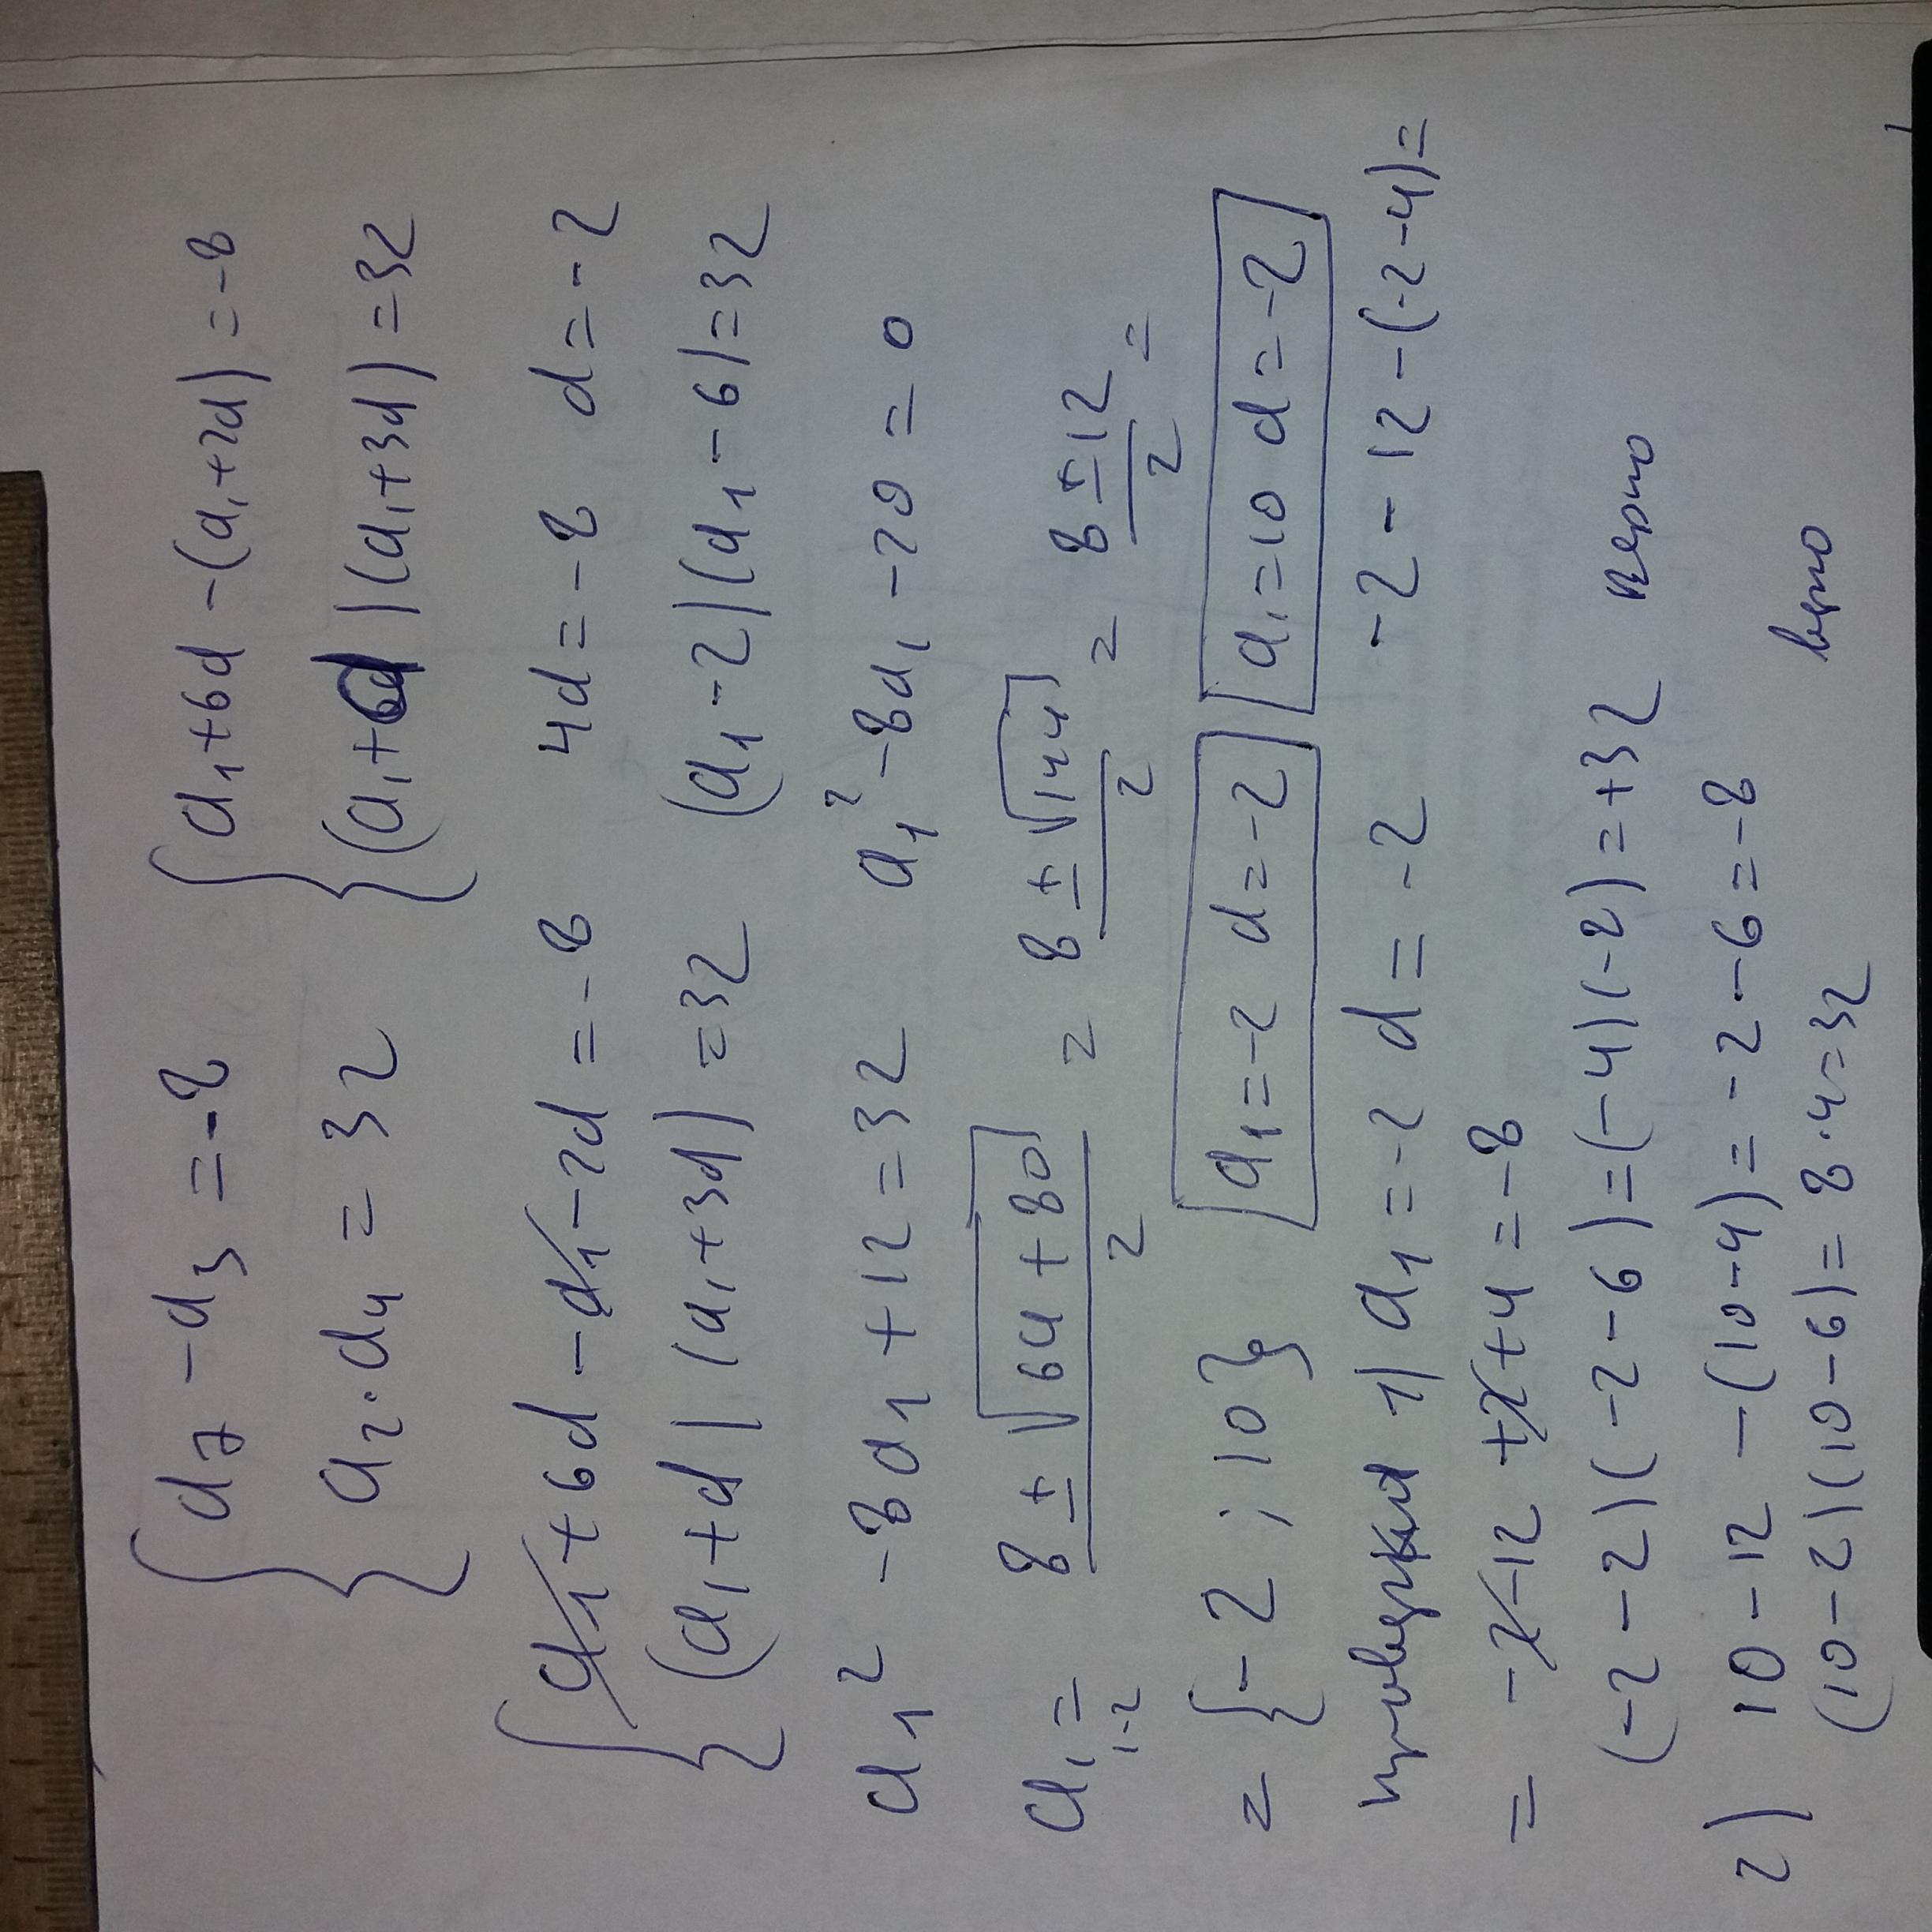 { a₇ - a₃ = -8 { a₁ + 6d - (a₁ + 2d) = -8
a₂ · a₄ = 32 (a₁ + d)(a₁ + 3d) = 32
{ a₁ + 6d - a₁ - 2d = -8 4d = -8 d = -2
(a₁ + d)(a₁ + 3d) = 32 (a₁ - 2)(a₁ - 6) = 32
a₁² - 8a₁ + 12 = 32 a₁² - 8a₁ - 20 = 0
a₁ ₁₋₂ = (8 ± √(64 + 80))/2 = (8 ± √144)/2 = (8 ± 12)/2 =
= {-2 ; 10} a₁ = -2 d = -2 a₁ = 10 d = -2
проверка 1) a₁ = -2 d = -2 -2 - 12 - (-2 - 4) =
= -2 - 12 + 2 + 4 = -8
(-2 - 2)(-2 - 6) = (-4)(-2) = +32 верно
2) 10 - 12 - (10 - 4) = -2 - 6 = -8
(10 - 2)(10 - 6) = 8 · 4 = 32 верно